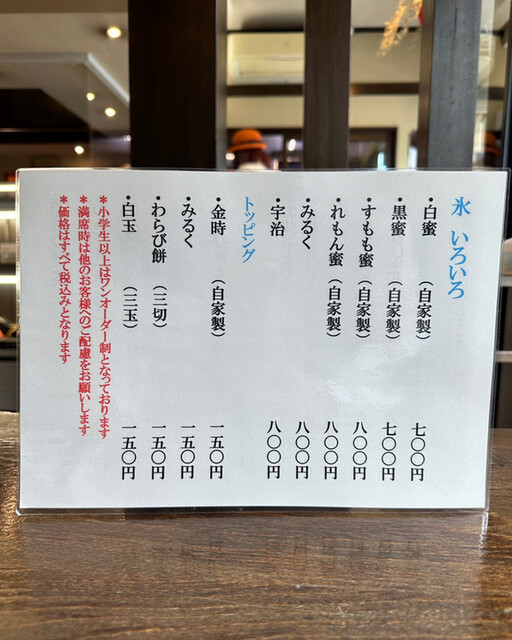 氷 いろいろ
・白蜜 （自家製） 七〇〇円
・黒蜜 （自家製） 七〇〇円
・すもも蜜 （自家製） 八〇〇円
・れもん蜜 （自家製） 八〇〇円
・みるく 八〇〇円
・宇治 八〇〇円
トッピング
・金時 （自家製） 一五〇円
・みるく 一五〇円
・わらび餅 （三切） 一五〇円
・白玉 （三玉） 一五〇円
＊小学生以上はワンオーダー制となっております
＊満席時は他のお客様へのご配慮をお願いします
＊価格はすべて税込みとなります